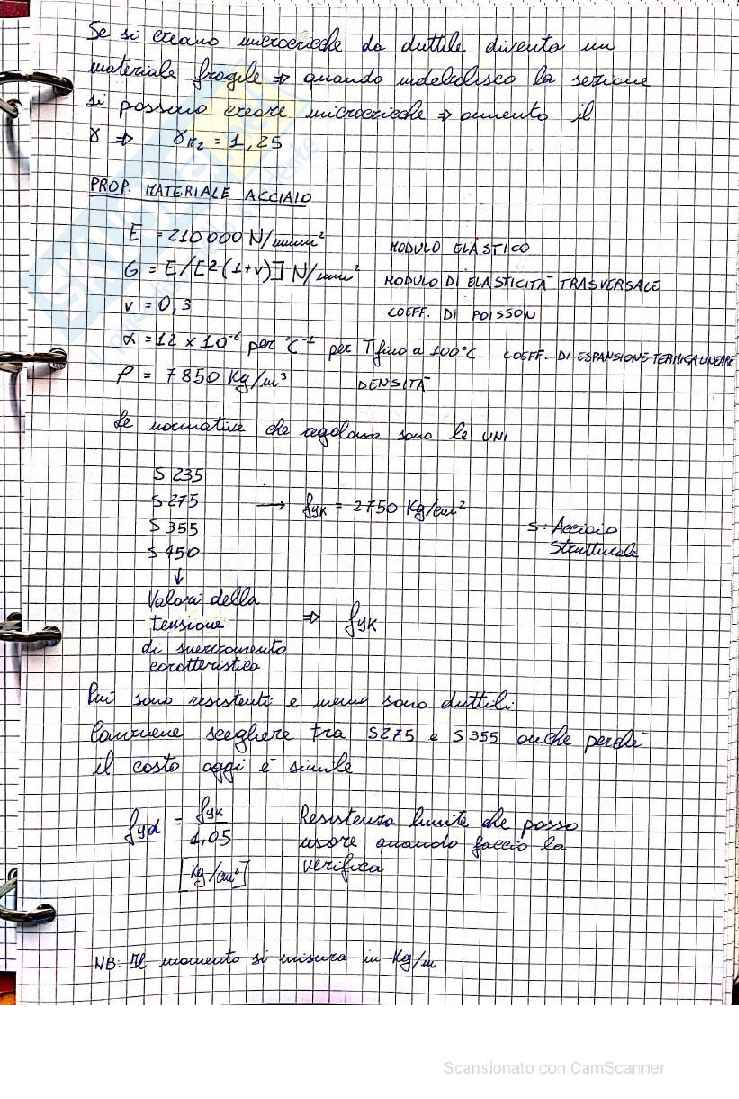 Se si creano microcricche da duttile diventa un
materiale fragile ⇒ quando indebolisco la sezione
si possono creare microcricche ⇒ aumento il
γ ⇒ γM2 = 1,25
PROP. MATERIALE ACCIAIO
E = 210000 N/mm² MODULO ELASTICO
G = E/[2(1+ν)] N/mm² MODULO DI ELASTICITÀ TRASVERSALE
ν = 0,3 COEFF. DI POISSON
α = 12 x 10⁻⁶ per °C⁻¹ per T fino a 100°C COEFF. DI ESPANSIONE TERMICA LINEARE
ρ = 7850 Kg/m³ DENSITÀ
Le normative che regolano sono le UNI
S 235
S 275 → fyk = 2750 Kg/cm²
S 355 S: Acciaio
S 450 Strutturale
↓
Valori della
tensione ⇒ fyk
di snervamento
caratteristico
Più sono resistenti e meno sono duttili.
Conviene scegliere tra S275 e S355 anche perchè
il costo oggi è simile
fyd = fyk / 1,05 Resistenza limite che posso
usare quando faccio la
[Kg/cm²] verifica
NB: Il momento si misura in Kg/m
Scansionato con CamScanner